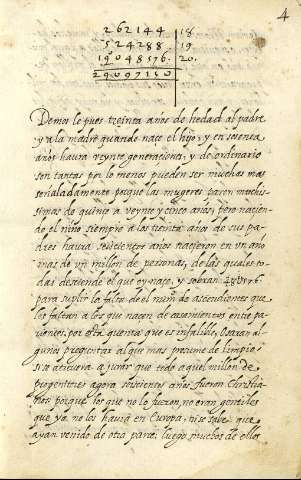 4
262144 | 18
524288 | 19.
1048576. | 20.
2097150
Demos le pues treinta años de hedad al padre
y a la madre quando nace el hijo, y en seiscientos
años haura veynte generaciones, y de ordinario
son tantas por lo menos pueden ser muchas mas
señaladamente porque las mugeres paren muchis-
simas de quinze a veynte y cinco años, pero nacien-
do el niño siempre a los treinta años de sus pa-
dres havra seiscientos años nacieron en un año
mas de un millon de personas, de las quales to-
das desciende el que oy nace, y sobran 48576
para suplir la falta de el num de ascendientes que
le faltan a los que nacen de casamientos entre pa-
rientes, por esta quenta que es infalible, osaran al-
gunos preguntar al que mas presume de limpio
si se atreuera a jurar que todo aquel millon de
progenitores agora seiscientos años fueron Christia-
nos porque los que no lo fueron, no eran gentiles
que ya no los havia en Europa, ni se sabe que
ayan venido de otra parte, luego muchos de ellos